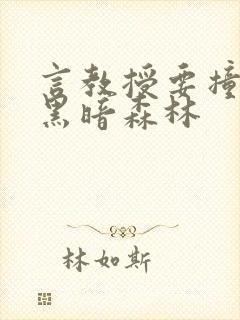 言教授要撞
黑暗森林
林如斯